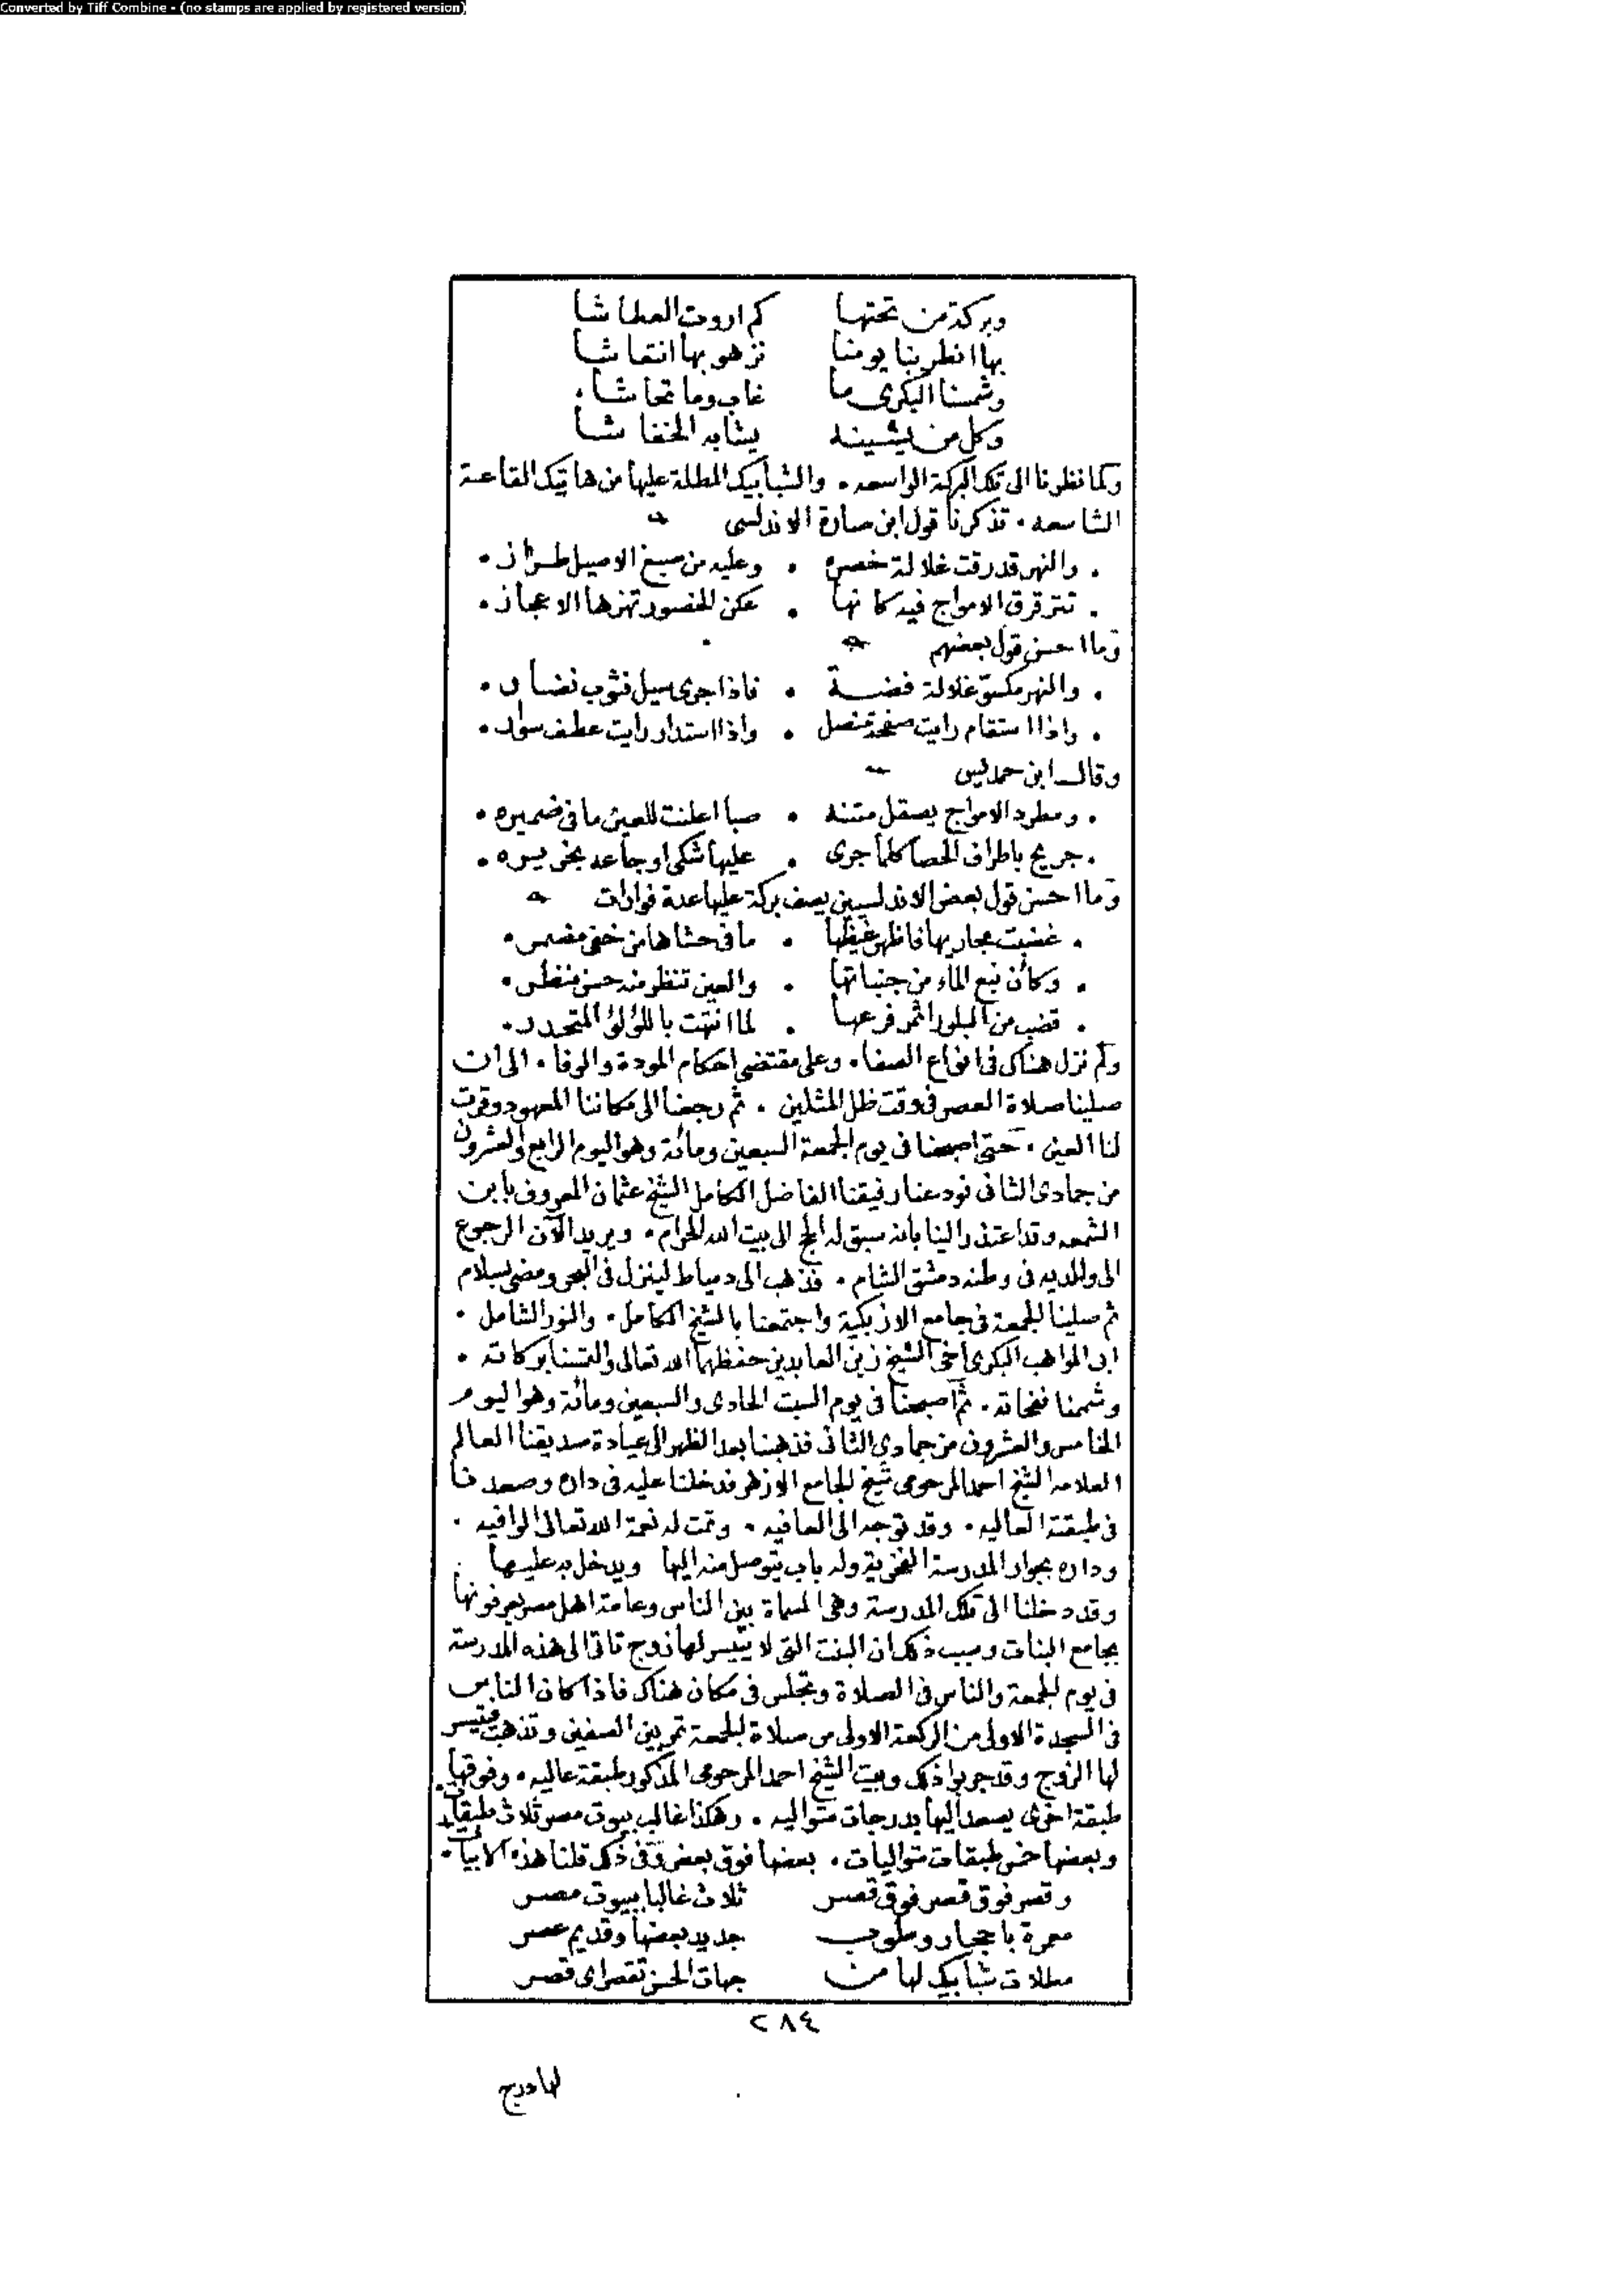 Converted by Tiff Combine - (no stamps are applied by registered version)
وبركة من تحتها كم اروت العطاشا
بها انطربنا يومنا نزهو بها انتعاشا
وشمسنا البكرى ما غاب وما تحاشا
وكل من يشينه يشابه الخفاشا
وكما نظرنا الى تلك البركة الواسعه . والشبابيك المطلة عليها من هاتيك القاعة
الشاسعه . تذكرنا قول ابن سارة الاندلسى
والنهر قد رقت غلالة خصره . وعليه من صبغ الاصيل طراز .
تترقرق الامواج فيه كانها . عكن الخصور تهزها الاعجاز .
وما احسن قول بعضهم
والنهر مكسو غلالة فضة . فاذا جرى سيل فثوب نضار .
واذا استقام رايت صفحة منصل . واذا استدار رايت عطف سوار .
وقال ابن حمديس
ومطرد الامواج يصقل متنه . صبا اعلنت للعين ما فى ضميره .
جريح باطراف الحصا كلما جرى . عليها شكى اوجاعه بخريره .
وما احسن قول بعض الاندلسيين يصف بركة عليها عدة فوارات
غضبت مجاريها فاظهر غيظها . ما فى حشاها من خفى مضمر .
وكان نبع الماء من جنباتها . والعين تنظر منه حسن منظر .
قضب من البلور اثمر فرعها . لما انتهت باللؤلؤ المتحدر .
ولم نزل هناك فى انواع الصفا . وعلى مقتضى احكام المودة والوفا . الى ان
صلينا صلاة العصر فى وقت ظل المثلين . ثم رجعنا الى مكاننا المعهود وقرت
لنا العين . حتى اصبحنا فى يوم الجمعة السبعين ومائة وهو اليوم الرابع والعشرون
من جمادى الثانى فودعنا رفيقنا الفاضل الكامل الشيخ عثمان المعروف بابن
الشمعه وقد اعتذر الينا بانه سبق له الحج الى بيت الله الحرام . ويريد الآن الرجوع
الى والديه فى وطنه دمشق الشام . فذهب الى دمياط لينزل فى البحر ومضى بسلام
ثم صلينا الجمعة فى جامع الازبكية واجتمعنا بالشيخ الكامل . والنور الشامل .
ابى المواهب البكرى اخى الشيخ زين العابدين حفظهما الله تعالى والتمسنا بركاته .
وشممنا نفحاته . ثم اصبحنا فى يوم السبت الحادى والسبعين ومائة وهو اليوم
الخامس والعشرون من جمادى الثانى فذهبنا بعد الظهر الى عيادة صديقنا العالم
العلامه الشيخ احمد المرحومى شيخ الجامع الازهر فدخلنا عليه فى داره وصعدنا
فى طبقته العاليه . وقد توجه الى العافيه . وتمت له نعمة الله تعالى الوافيه .
وداره بجوار المدرسة الفخرية وله باب يتوصل منه اليها ويدخل به عليها
وقد دخلنا الى تلك المدرسة وهى المسماة بين الناس وعامة اهل مصر يعرفونها
بجامع البنات وسبب ذلك ان البنت التى لا يتيسر لها زوج تاتى الى هذه المدرسة
فى يوم الجمعة والناس فى الصلاة وتجلس فى مكان هناك فاذا كان الناس
فى السجدة الاولى من الركعة الاولى من صلاة الجمعة تمر بين الصفين وتذهب فيتيسر
لها الزوج وقد جربوا ذلك وبيت الشيخ احمد المرحومى المذكور طبقة عاليه . وفوقها
طبقة اخرى يصعد اليها بدرجات متواليه . وهكذا غالب بيوت مصر ثلاث طبقات
وبعضها خمس طبقات متواليات . بعضها فوق بعض وفى ذلك قلنا هذه الابيات .
وقصر فوق قصر فوق قصر ثلاث غالبا ببيوت مصر
معمرة باحجار وطوب جديد بعضها وقديم عصر
مطلات شبابيك لها من جهات الحسن تقصر اى قصر
٢٨٤
لها درج